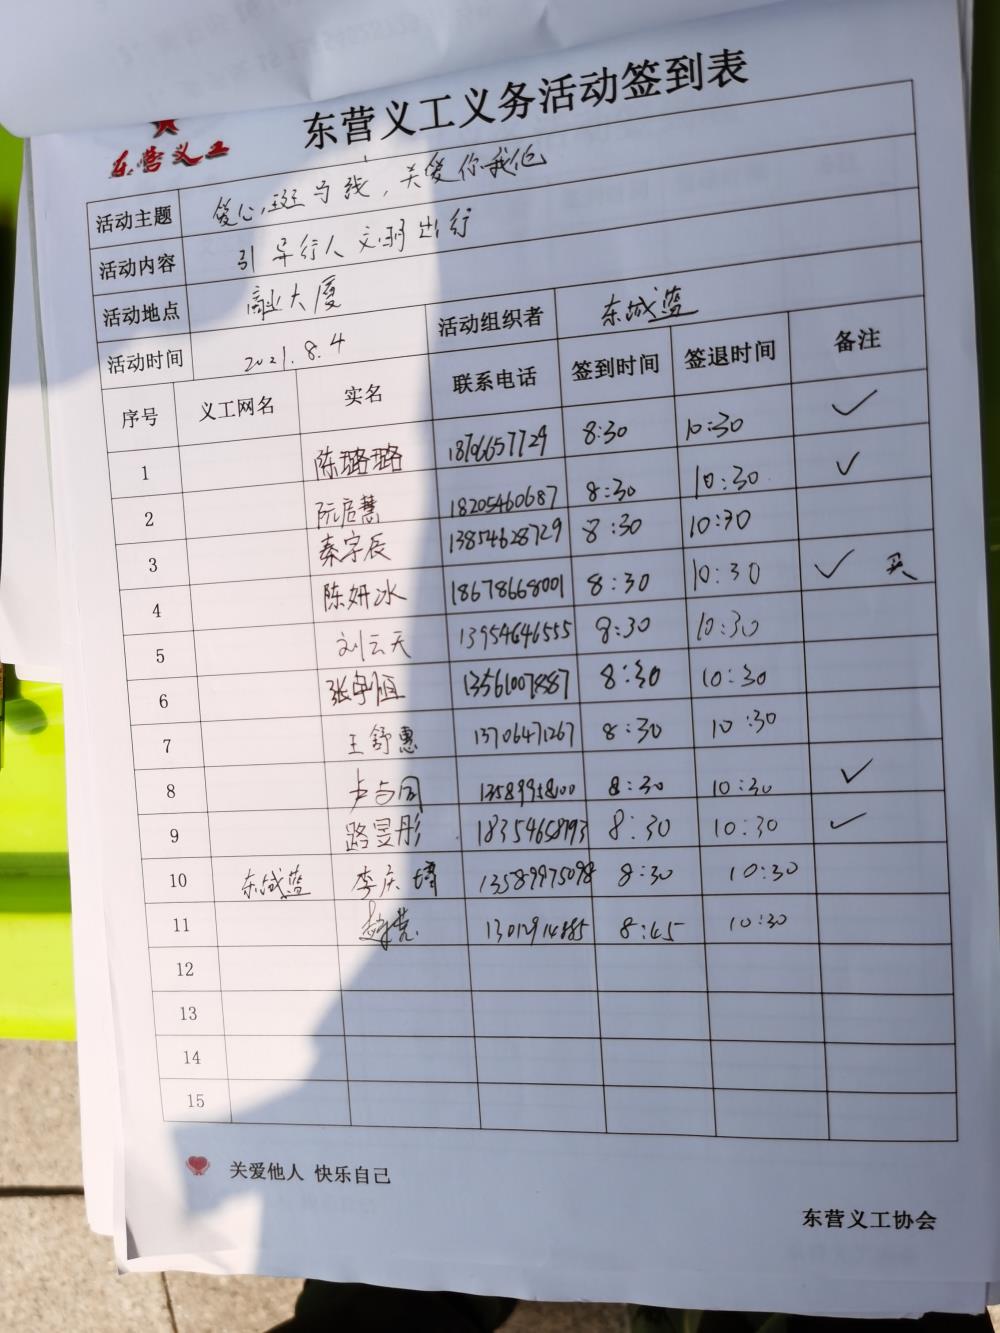 东营义工义务活动签到表
东营义工
活动主题 爱心斑马线，关爱你我他
活动内容 引导行人文明出行
活动地点 商业大厦 活动组织者 东城蓝
活动时间 2021.8.4
序号 义工网名 实名 联系电话 签到时间 签退时间 备注
1 陈璐璐 18706657729 8:30 10:30 ✓
2 阮启慧 18205460687 8:30 10:30 ✓
3 秦宇辰 13854628729 8:30 10:30
4 陈妍冰 18678668001 8:30 10:30 ✓
5 刘云天 13954646555 8:30 10:30
6 张宇恒 13561007887 8:30 10:30
7 王舒惠 13706471267 8:30 10:30
8 卢与同 8:30 10:30 ✓
9 路昱彤 18354658793 8:30 10:30 ✓
10 东城蓝 李庆 13589975098 8:30 10:30
11 8:45 10:30
12
13
14
15
关爱他人 快乐自己
东营义工协会